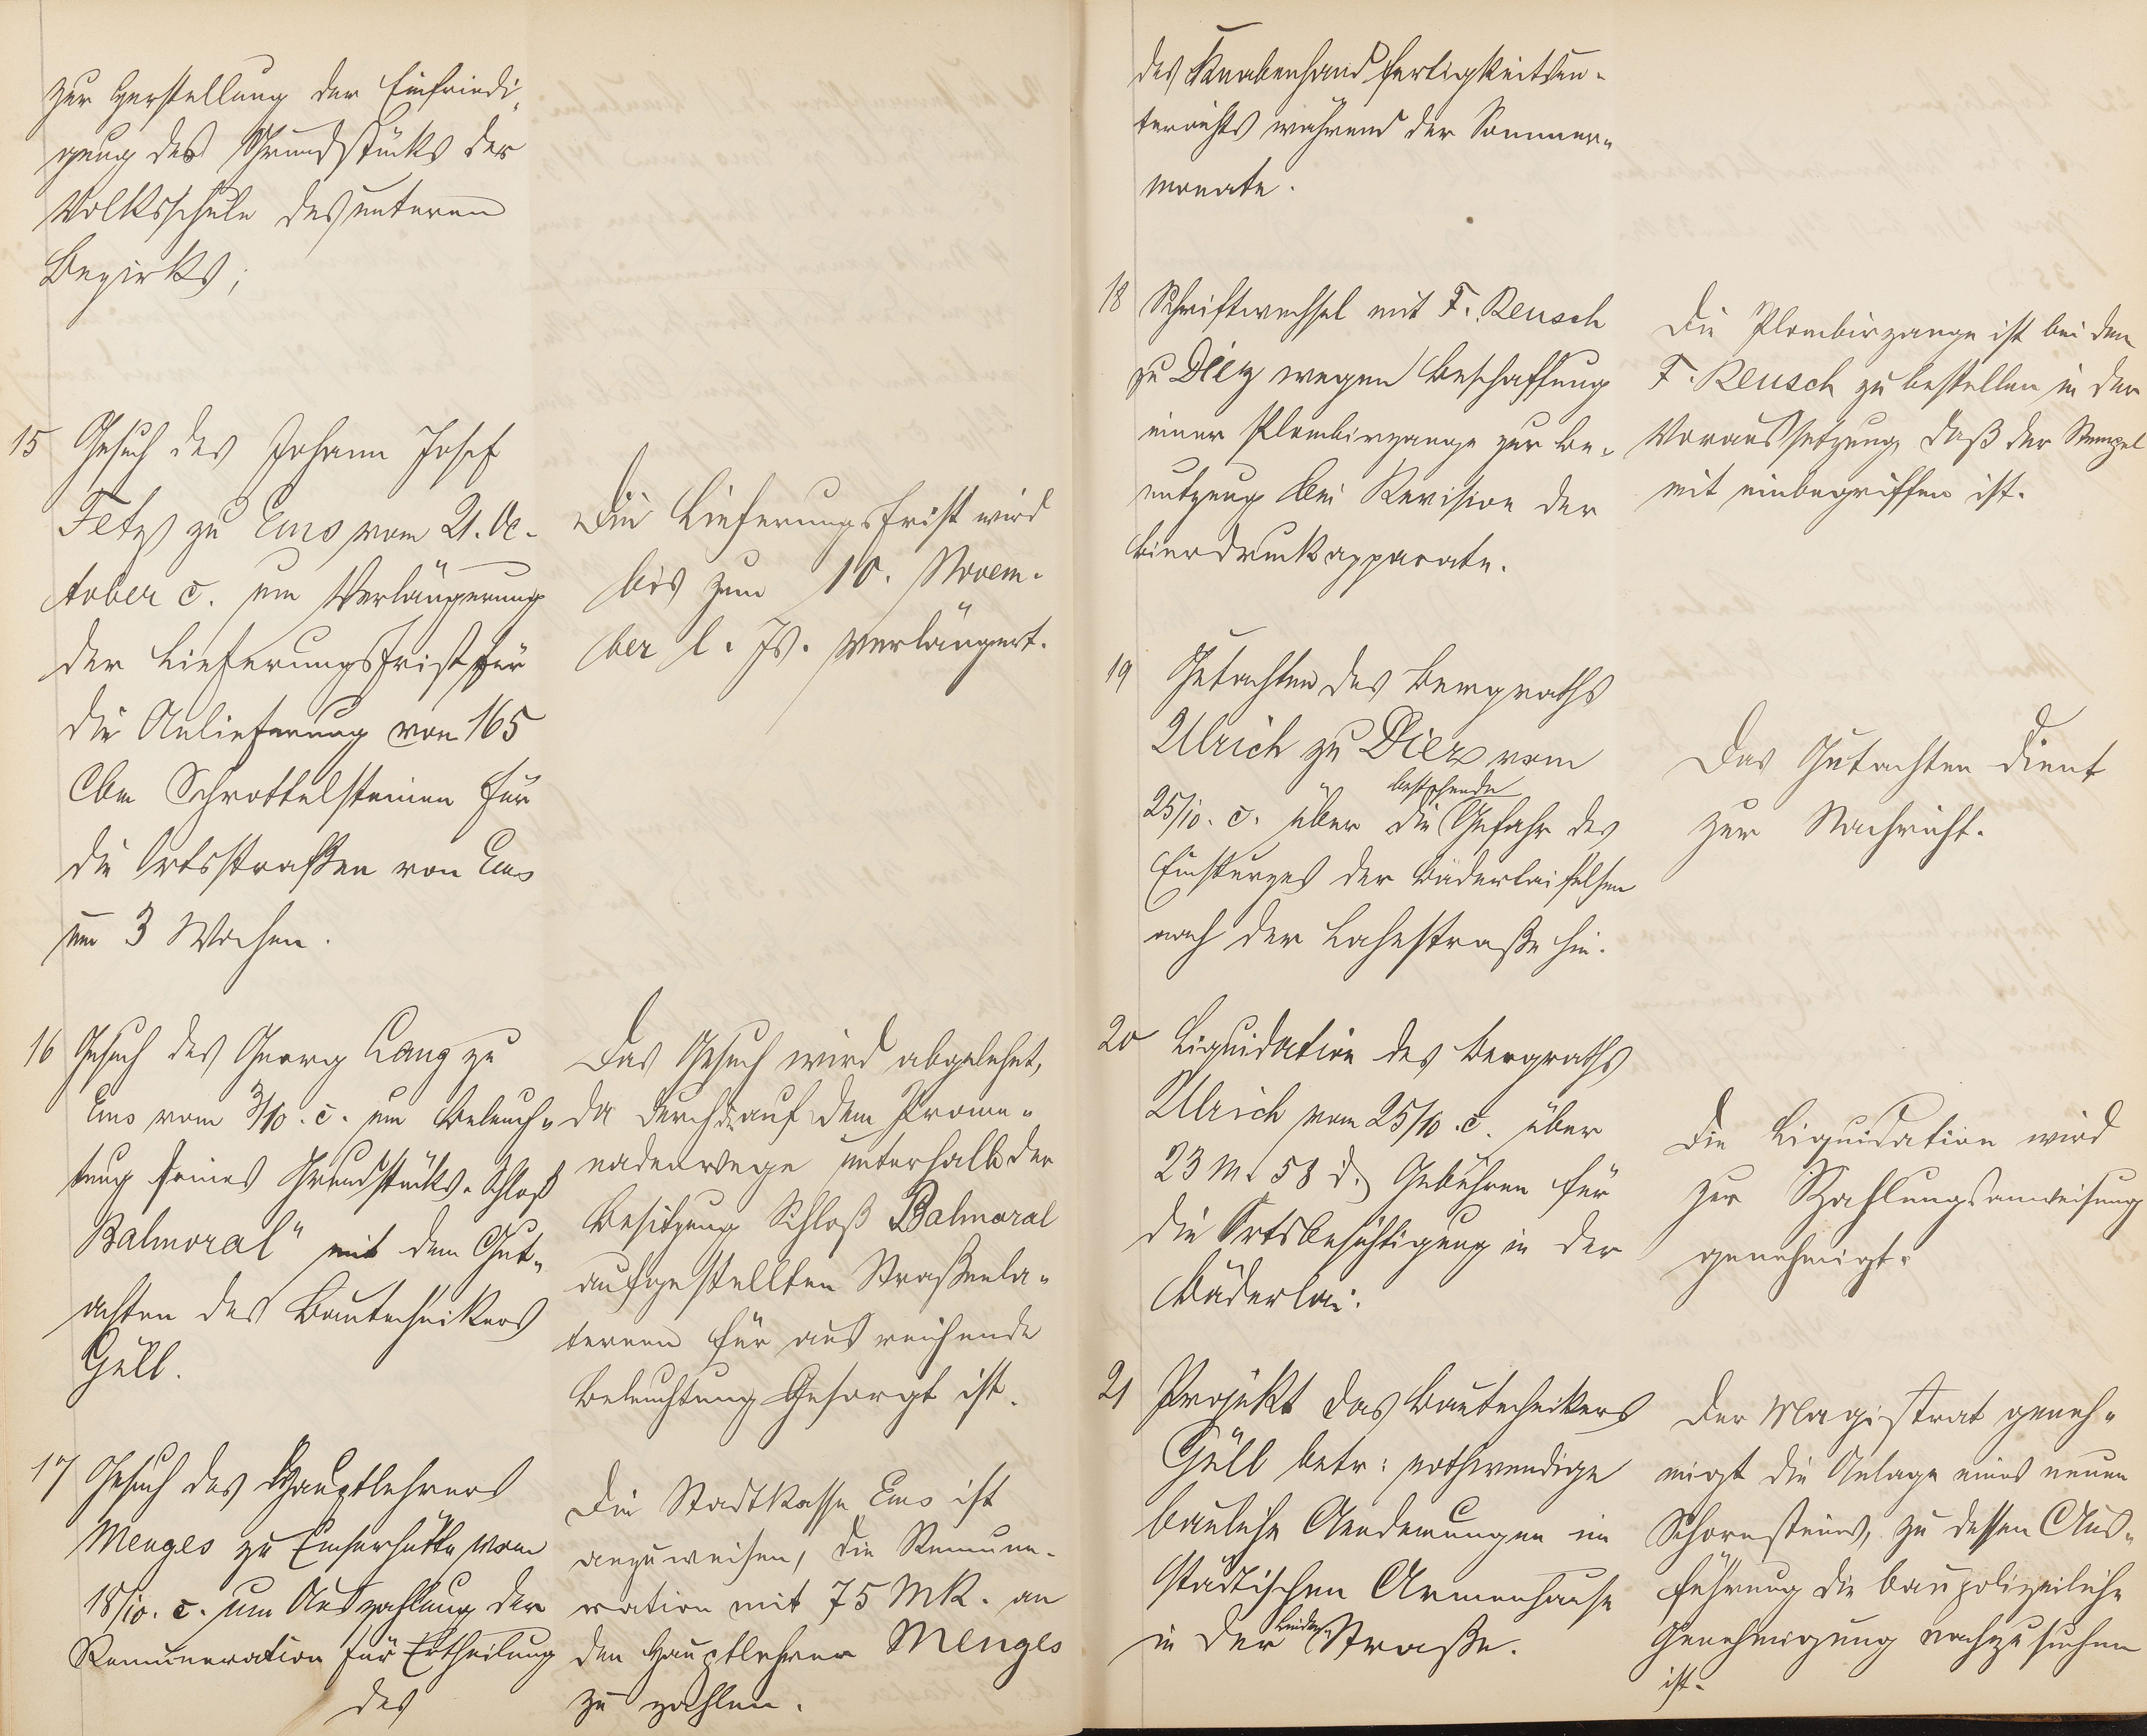 zur Herstellung der Einfriedi-
gung des Grundstücks der
Volksschule des unteren
Bezirks;
15 Gesuch des Johann Josef
Fetz zu Ems vom 21. Oc-
tober c. um Verlängerung
der Lieferungsfrist für
die Anlieferung von 165
Cbm Schrottelsteinen für
die Ortsstraßen von Ems
um 3 Wochen.
Die Lieferungsfrist wird
bis zum 10. Novem-
ber l. Js. verlängert.
16 Gesuch des Georg Lang zu
Ems vom 3/10. c. um Beleuch-
tung seines Grundstücks „Schloß
Balmoral" mit dem Gut-
achten des Bautechnikers
Güll.
Das Gesuch wird abgelehnt,
da durch die auf dem Prome-
nadenwege unterhalb der
Besitzung Schloß Balmoral
aufgestellten Straßenla-
ternen für ausreichende
Beleuchtung Gesorgt ist.
17 Gesuch des Hauptlehrers
Menges zu Emserhütte vom
18/10. c. um Auszahlung der
Remuneration für Ertheilung
des
Die Stadtkasse Ems ist
anzuweisen, die Remune-
ration mit 75 Mk. an
den Hauptlehrer Menges
zu zahlen.
des Knabenhandfertigkeitsun-
terrichts während der Sommer-
monate.
18 Schriftwechsel mit F. Reusch
zu Diez wegen Beschaffung
einer Plombirzange zur Be-
nutzung bei Revision der
Bierdruckapparate.
Die Plombirzange ist bei dem
F. Reusch zu bestellen in der
Voraussetzung, daß der Stempel
mit einbegriffen ist.
19 Gutachten des Bergraths
Ulrich zu Diez vom
25/10. c. über die bestehende Gefahr des
Einsturzes der Bäderleifelsen
nach der Lahnstraße hin.
Das Gutachten dient
zur Nachricht.
20 Liquidation des Bergraths
Ulrich vom 25/10. c. über
23 M. 58 d. Gebühren für
die Ortsbesichtigung in der
Bäderlei.
Die Liquidation wird
zur Zahlungsanweisung
genehmigt.
21 Projekt das Bautechnikers
Güll betr: nothwendige
bauliche Aenderungen im
städtischen Armenhause
in der Linden-Straße.
Der Magistrat geneh-
migt die Anlage eines neuen
Schornsteins, zu dessen Aus-
führung die baupolizeiliche
Genehmigung nachzusuchen
ist.